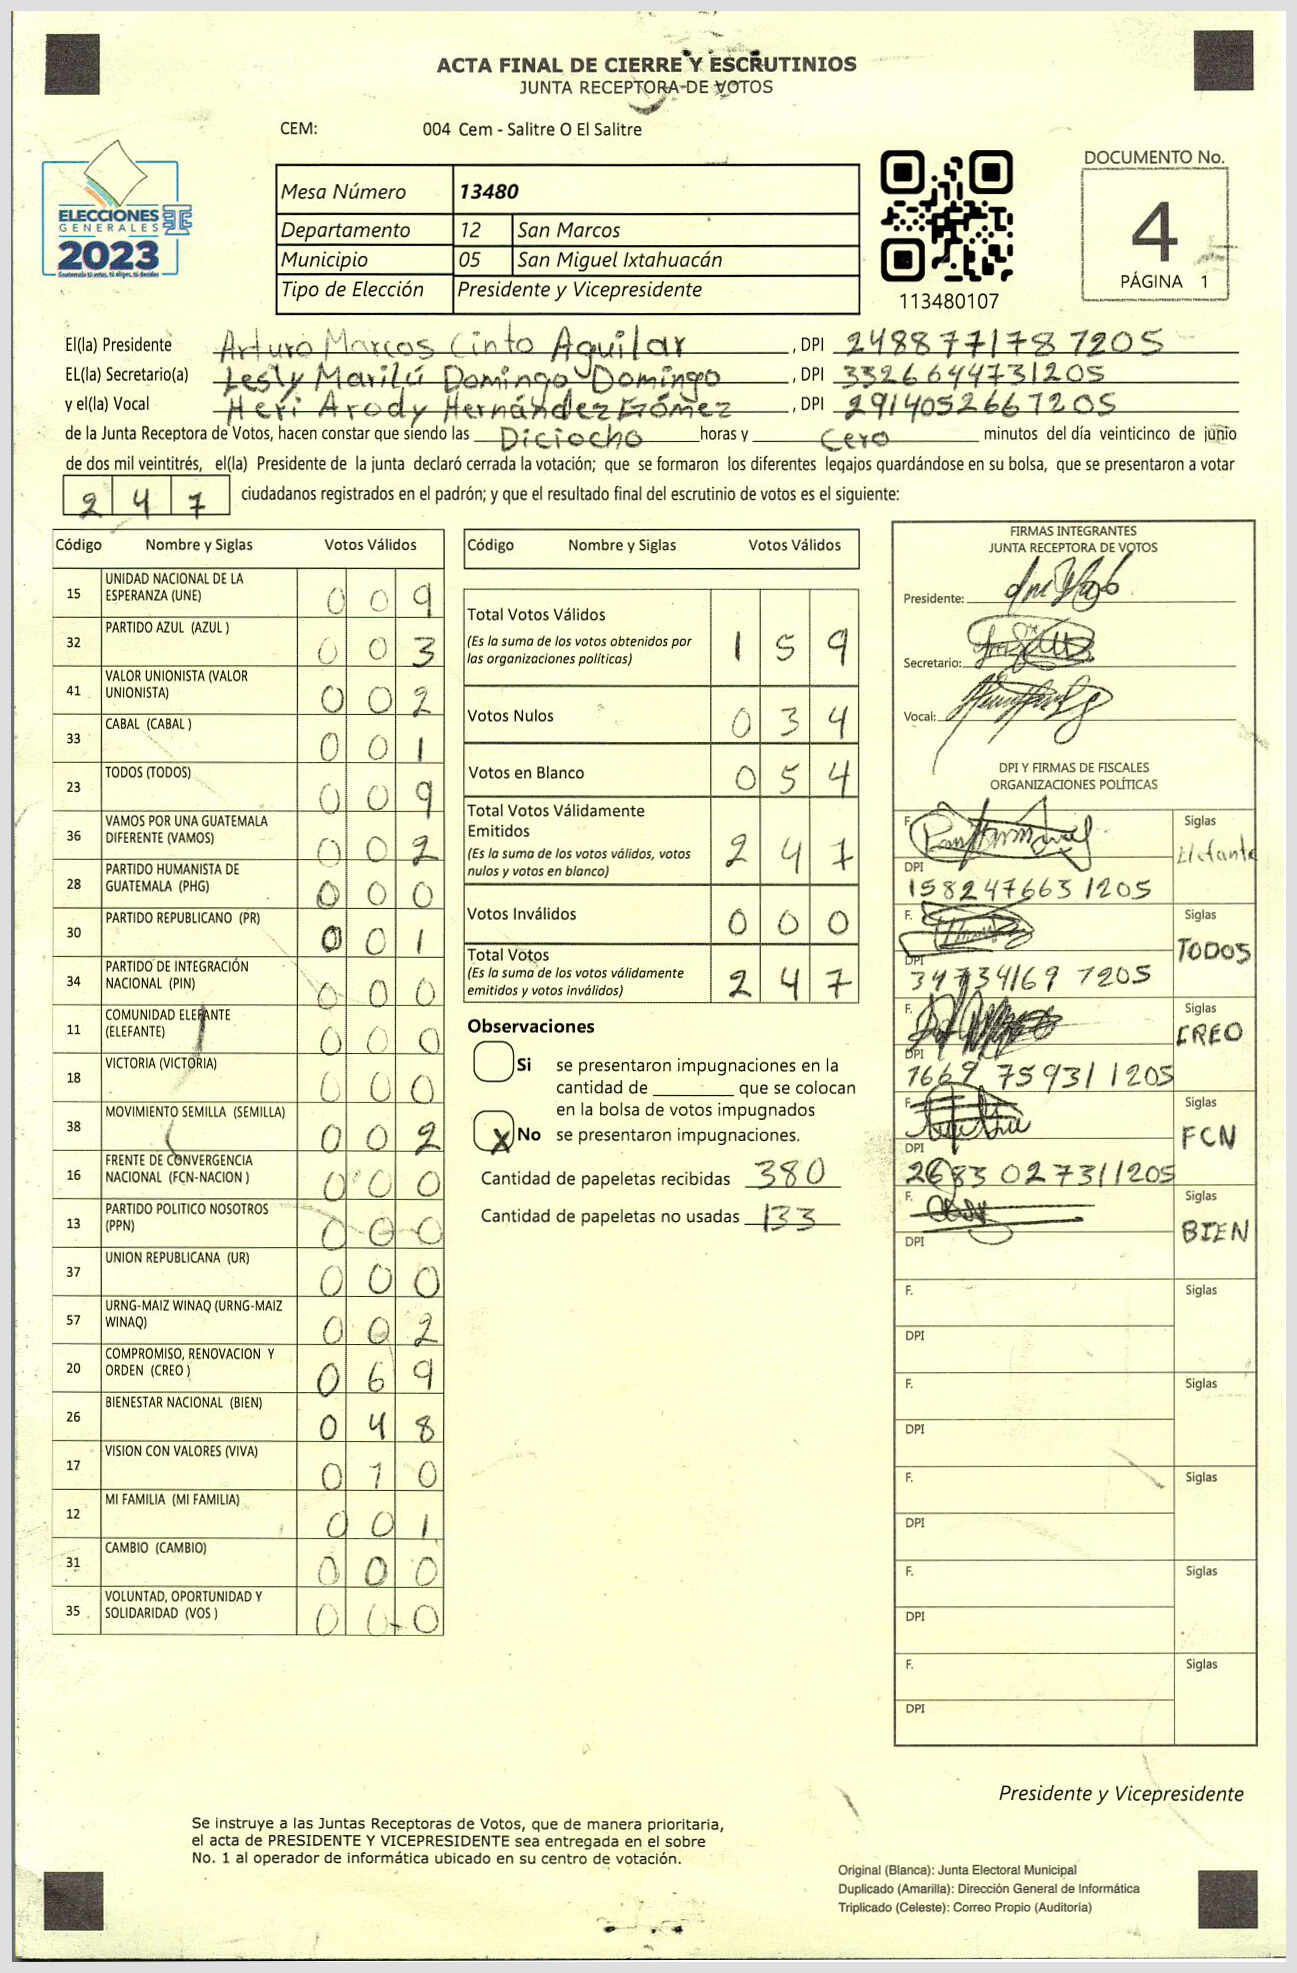 ACTA FINAL DE CIERRE Y ESCRUTINIOS
JUNTA RECEPTORA DE VOTOS
CEM: 004 Cem - Salitre O El Salitre
ELECCIONES
GENERALES
2023
Mesa Número 13480
Departamento 12 San Marcos
Municipio 05 San Miguel Ixtahuacán
Tipo de Elección Presidente y Vicepresidente
113480107
DOCUMENTO No.
4
PÁGINA 1
El(la) Presidente Arturo Marcos Cinto Aguilar, DPI 2488771787205
EL(la) Secretario(a) Lesly Marilú Domingo Domingo, DPI 3326644731205
y el(la) Vocal Heri Arody Hernández Gómez, DPI 2914052667205
de la Junta Receptora de Votos, hacen constar que siendo las Diciocho horas y Cero minutos del día veinticinco de junio
de dos mil veintitrés, el(la) Presidente de la junta declaró cerrada la votación; que se formaron los diferentes legajos guardándose en su bolsa, que se presentaron a votar
2 4 7 ciudadanos registrados en el padrón; y que el resultado final del escrutinio de votos es el siguiente:
Código Nombre y Siglas Votos Válidos
15 UNIDAD NACIONAL DE LA ESPERANZA (UNE) 0 0 9
32 PARTIDO AZUL (AZUL ) 0 0 3
41 VALOR UNIONISTA (VALOR UNIONISTA) 0 0 2
33 CABAL (CABAL ) 0 0 1
23 TODOS (TODOS) 0 0 9
36 VAMOS POR UNA GUATEMALA DIFERENTE (VAMOS) 0 0 2
28 PARTIDO HUMANISTA DE GUATEMALA (PHG) 0 0 0
30 PARTIDO REPUBLICANO (PR) 0 0 1
34 PARTIDO DE INTEGRACIÓN NACIONAL (PIN) 0 0 0
11 COMUNIDAD ELEFANTE (ELEFANTE) 0 0 0
18 VICTORIA (VICTORIA) 0 0 0
38 MOVIMIENTO SEMILLA (SEMILLA) 0 0 2
16 FRENTE DE CONVERGENCIA NACIONAL (FCN-NACION ) 0 0 0
13 PARTIDO POLITICO NOSOTROS (PPN) 0 0 0
37 UNION REPUBLICANA (UR) 0 0 0
57 URNG-MAIZ WINAQ (URNG-MAIZ WINAQ) 0 0 2
20 COMPROMISO, RENOVACION Y ORDEN (CREO ) 0 6 9
26 BIENESTAR NACIONAL (BIEN) 0 4 8
17 VISION CON VALORES (VIVA) 0 1 0
12 MI FAMILIA (MI FAMILIA) 0 0 1
31 CAMBIO (CAMBIO) 0 0 0
35 VOLUNTAD, OPORTUNIDAD Y SOLIDARIDAD (VOS ) 0 0 0
Código Nombre y Siglas Votos Válidos
Total Votos Válidos 1 5 9
(Es la suma de los votos obtenidos por
las organizaciones políticas)
Votos Nulos 0 3 4
Votos en Blanco 0 5 4
Total Votos Válidamente
Emitidos 2 4 7
(Es la suma de los votos válidos, votos
nulos y votos en blanco)
Votos Inválidos 0 0 0
Total Votos 2 4 7
(Es la suma de los votos válidamente
emitidos y votos inválidos)
Observaciones
Si se presentaron impugnaciones en la
cantidad de ________ que se colocan
en la bolsa de votos impugnados
X No se presentaron impugnaciones.
Cantidad de papeletas recibidas 380
Cantidad de papeletas no usadas 133
FIRMAS INTEGRANTES
JUNTA RECEPTORA DE VOTOS
Presidente:
Secretario:
Vocal:
DPI Y FIRMAS DE FISCALES
ORGANIZACIONES POLÍTICAS
F. Siglas Elefante
DPI
1582476631205
F. Siglas TODOS
DPI
34734169 7205
F. Siglas CREO
DPI
1669 75931 1205
F. Siglas FCN
DPI
2683 02731 1205
F. Siglas BIEN
DPI
F. Siglas
DPI
F. Siglas
DPI
F. Siglas
DPI
F. Siglas
DPI
F. Siglas
DPI
Presidente y Vicepresidente
Se instruye a las Juntas Receptoras de Votos, que de manera prioritaria,
el acta de PRESIDENTE Y VICEPRESIDENTE sea entregada en el sobre
No. 1 al operador de informática ubicado en su centro de votación.
Original (Blanca): Junta Electoral Municipal
Duplicado (Amarilla): Dirección General de Informática
Triplicado (Celeste): Correo Propio (Auditoría)